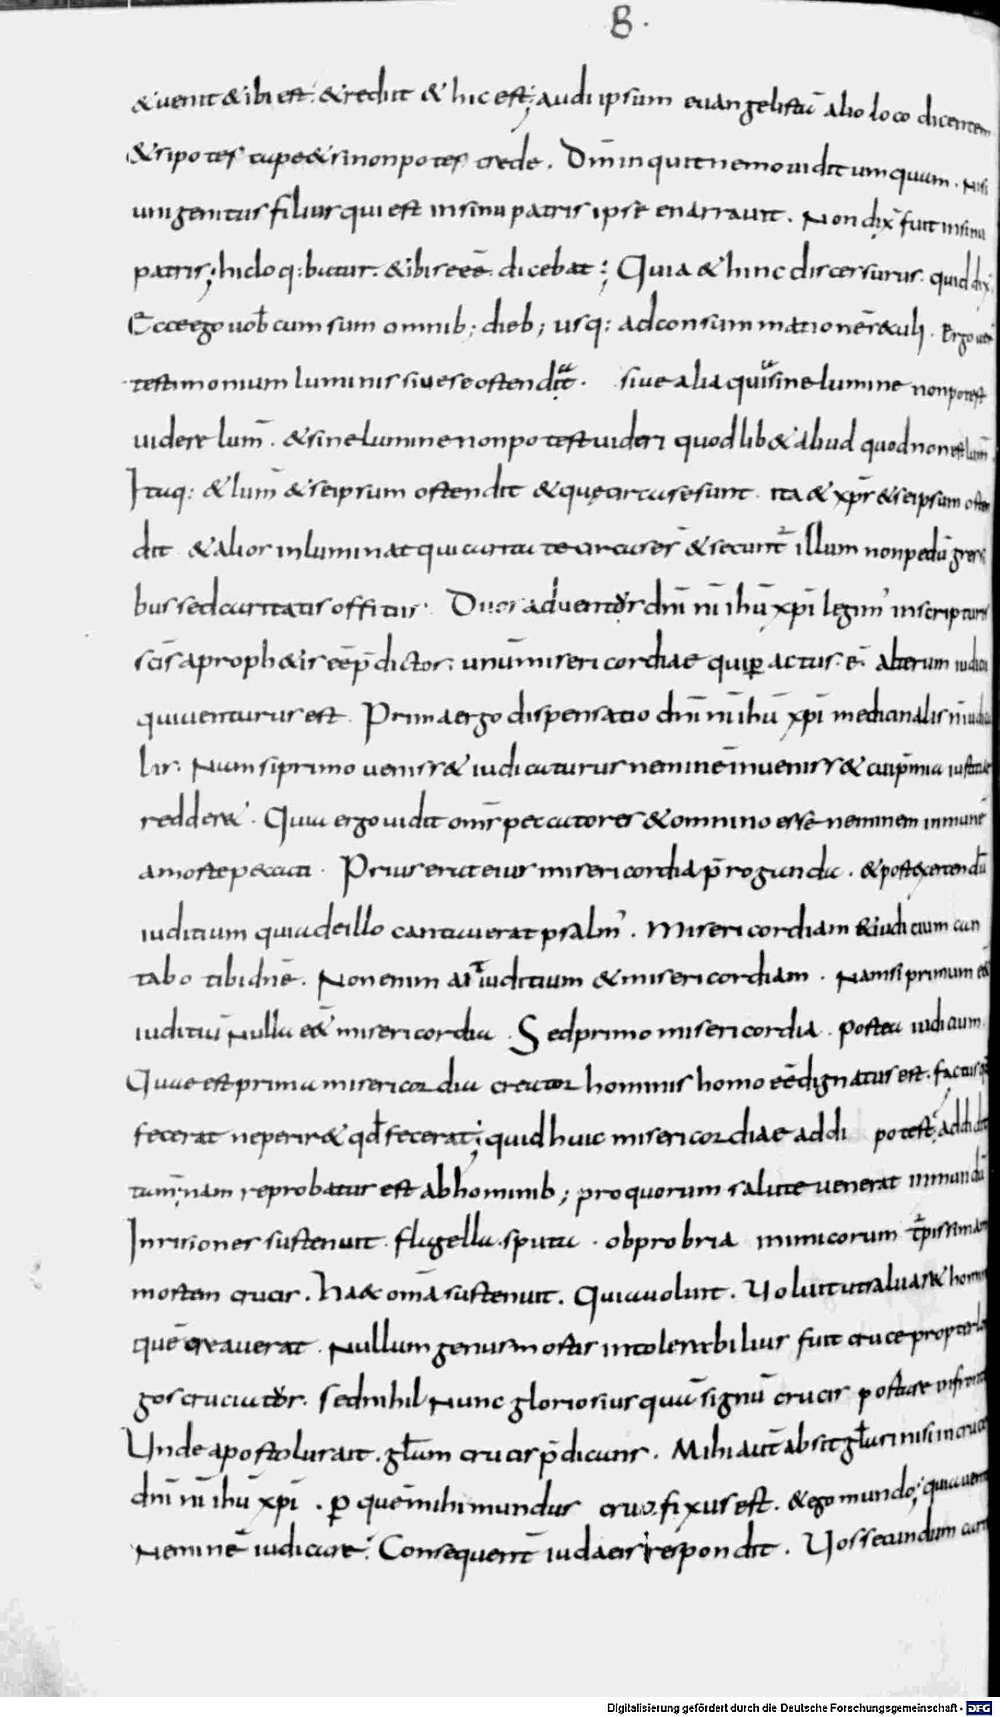 8.
& uenit & ibi est. & rediit & hic est; audi ipsum euangelistā alio loco dicentem
& si potes cape & si non potes crede. Dm̄ inquit nemo uidit umquam. Nisi
unigenitus filius qui est in sinu patris ipse enarrauit. Non dix̄ fuit in sinu
patris; hic loq:batur. & ibi se eē dicebat; Quia & hinc discessurus. quid dix̄
Ecce ego uob̄ cum sum omnib; dieb; usq: ad consummationē sęculi. Ergo
testimonium luminis siue se ostendat. siue alia quia sine lumine non potest
uidere lum̄. & sine lumine non potest uideri quod lib& aliud quod non est lum̄
Itaq: & lum̄ & se ipsum ostendit & quę circa se sunt. ita & xp̄s & se ipsum osten
dit & alios inluminat qui caritate circa se s̄ & secunt̄ illum non pedū gressi
bus sed caritatis officiis. Duos aduentus dn̄i nr̄i ihū xpī legim' in scripturis
sc̄is a proph&is eē p̄dictos: unū misericordiae qui ꝑactus ē. alterum iudicii
qui uenturus est. Prima ergo dispensatio dn̄i nr̄i ihū xp̄i medicinalis n̄ iudicia
lis. Nam si primo ueniss& iudicaturus neminē inueniss& cui p̄mia iustitiae
redder&. Quia ergo uidit om̄s peccatores & omnino esse neminem inmunē
a morte peccati. Prius erat eius misericordia p̄roganda. & post exercendū
iuditium quia de illo cantauerat psalm'. Misericordiam & iudicium can
tabo tibi dn̄e. Non enim ait iuditium & misericordiam. Nam si primum ess&
iuditiū nulla ess& misericordia. Sed primo misericordia. postea iudicium.
Quae est prima misericordia creator hominis homo eē dignatus est. factus q̄
fecerat ne perir& qd̄ fecerat; quid huic misericordiae addi potest; addidit
tam̄; nam reprobatus est ab hominib; pro quorum salute uenerat in mundū
Inrisiones sustenuit. flagella. sputa. obprobria inimicorum t̄pissimam
mortem crucis. Haec om̄a sustenuit. Quia uoluit. Uoluit ut saluar& homin
quē creauerat. Nullum genus mortis intolerabilius fuit cruce propter lo
gos cruciatus. sed nihil nunc gloriosius quā signū crucis portare in fronte
Unde apostolus ait. gl̄am crucis p̄dicans. Mihi aut̄ absit gl̄ari nisi in cruce
dn̄i nr̄i ihū xpī. ꝑ quem mihi mundus crucifixus est. & ego mundo; quia ueni
Neminē iudicare. Consequent̄ iudaeis respondit. Uos secundum carn